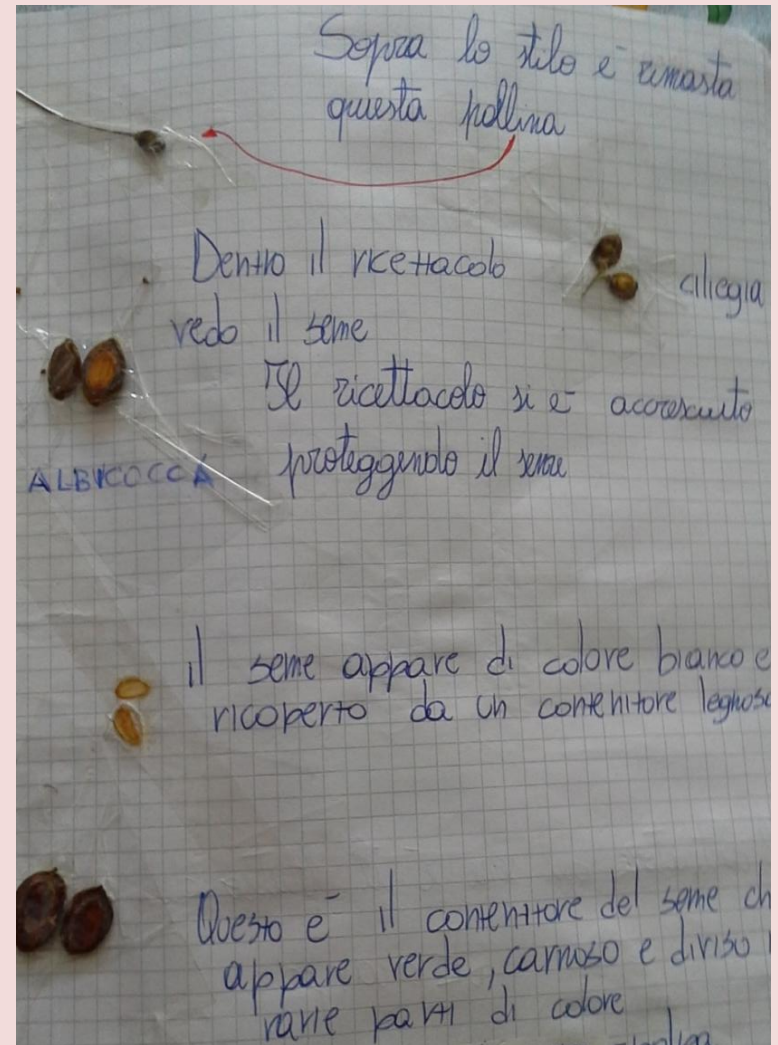 Sopra lo stilo è rimasta
questa pollina
Dentro il ricettacolo
ciliegia
vedo il seme
Il ricettacolo si è accresciuto
proteggendo il seme
ALBICOCCA
il seme appare di colore bianco e
ricoperto da un contenitore legnoso
Questo è il contenitore del seme ch
appare verde, carnoso e diviso
varie parti di colore